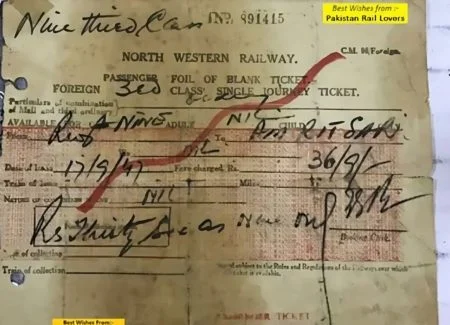 Best Wishes from :-
Pakistan Rail Lovers
Nine third Class
No 891415
C.M. 00/Foreign.
NORTH WESTERN RAILWAY.
PASSENGER FOIL OF BLANK TICKET.
FOREIGN 3rd CLASS SINGLE JOURNEY TICKET.
Particulars of combination
of Mail and third ordinary
AVAILABLE FOR NINE ADULT NIL CHILD
To AMRITSAR
Date of issue 17/9/47 Fare charged. Rs. 36/9/-
Train of issue Miles
NATURE OF NIL
Rs Thirty six as Nine only
Booking Clerk.
of collection
Train of collection
subject to the Rules and Regulations of the Railways over which
ticket is available.
PASSENGER TICKET
Best Wishes From:-